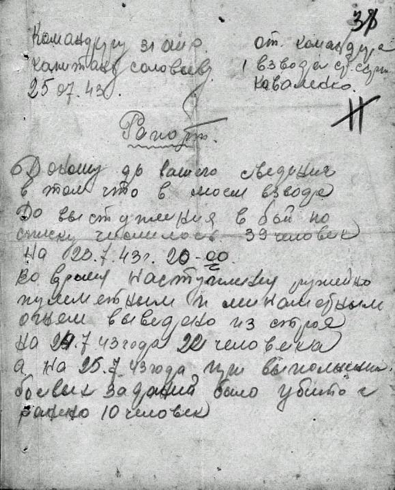 38
Командиру зг айр. от командира
Капитану Соловьеву 1 взвода ст. сер.
25.07.43г. Коваленко.
Рапорт.
Доношу до вашего сведения
в том что в моем взводе
До выступления в бой по
списку числилось 39 человек
На 23.7.43г. 20-00.
Во время наступления ружейно
пулеметным и минаметным
огнем выведено из строя
на 24.7.43 года 22 человека
а на 25.7.43 года при выполнении
боевых заданий было убито и
ранено 10 человек